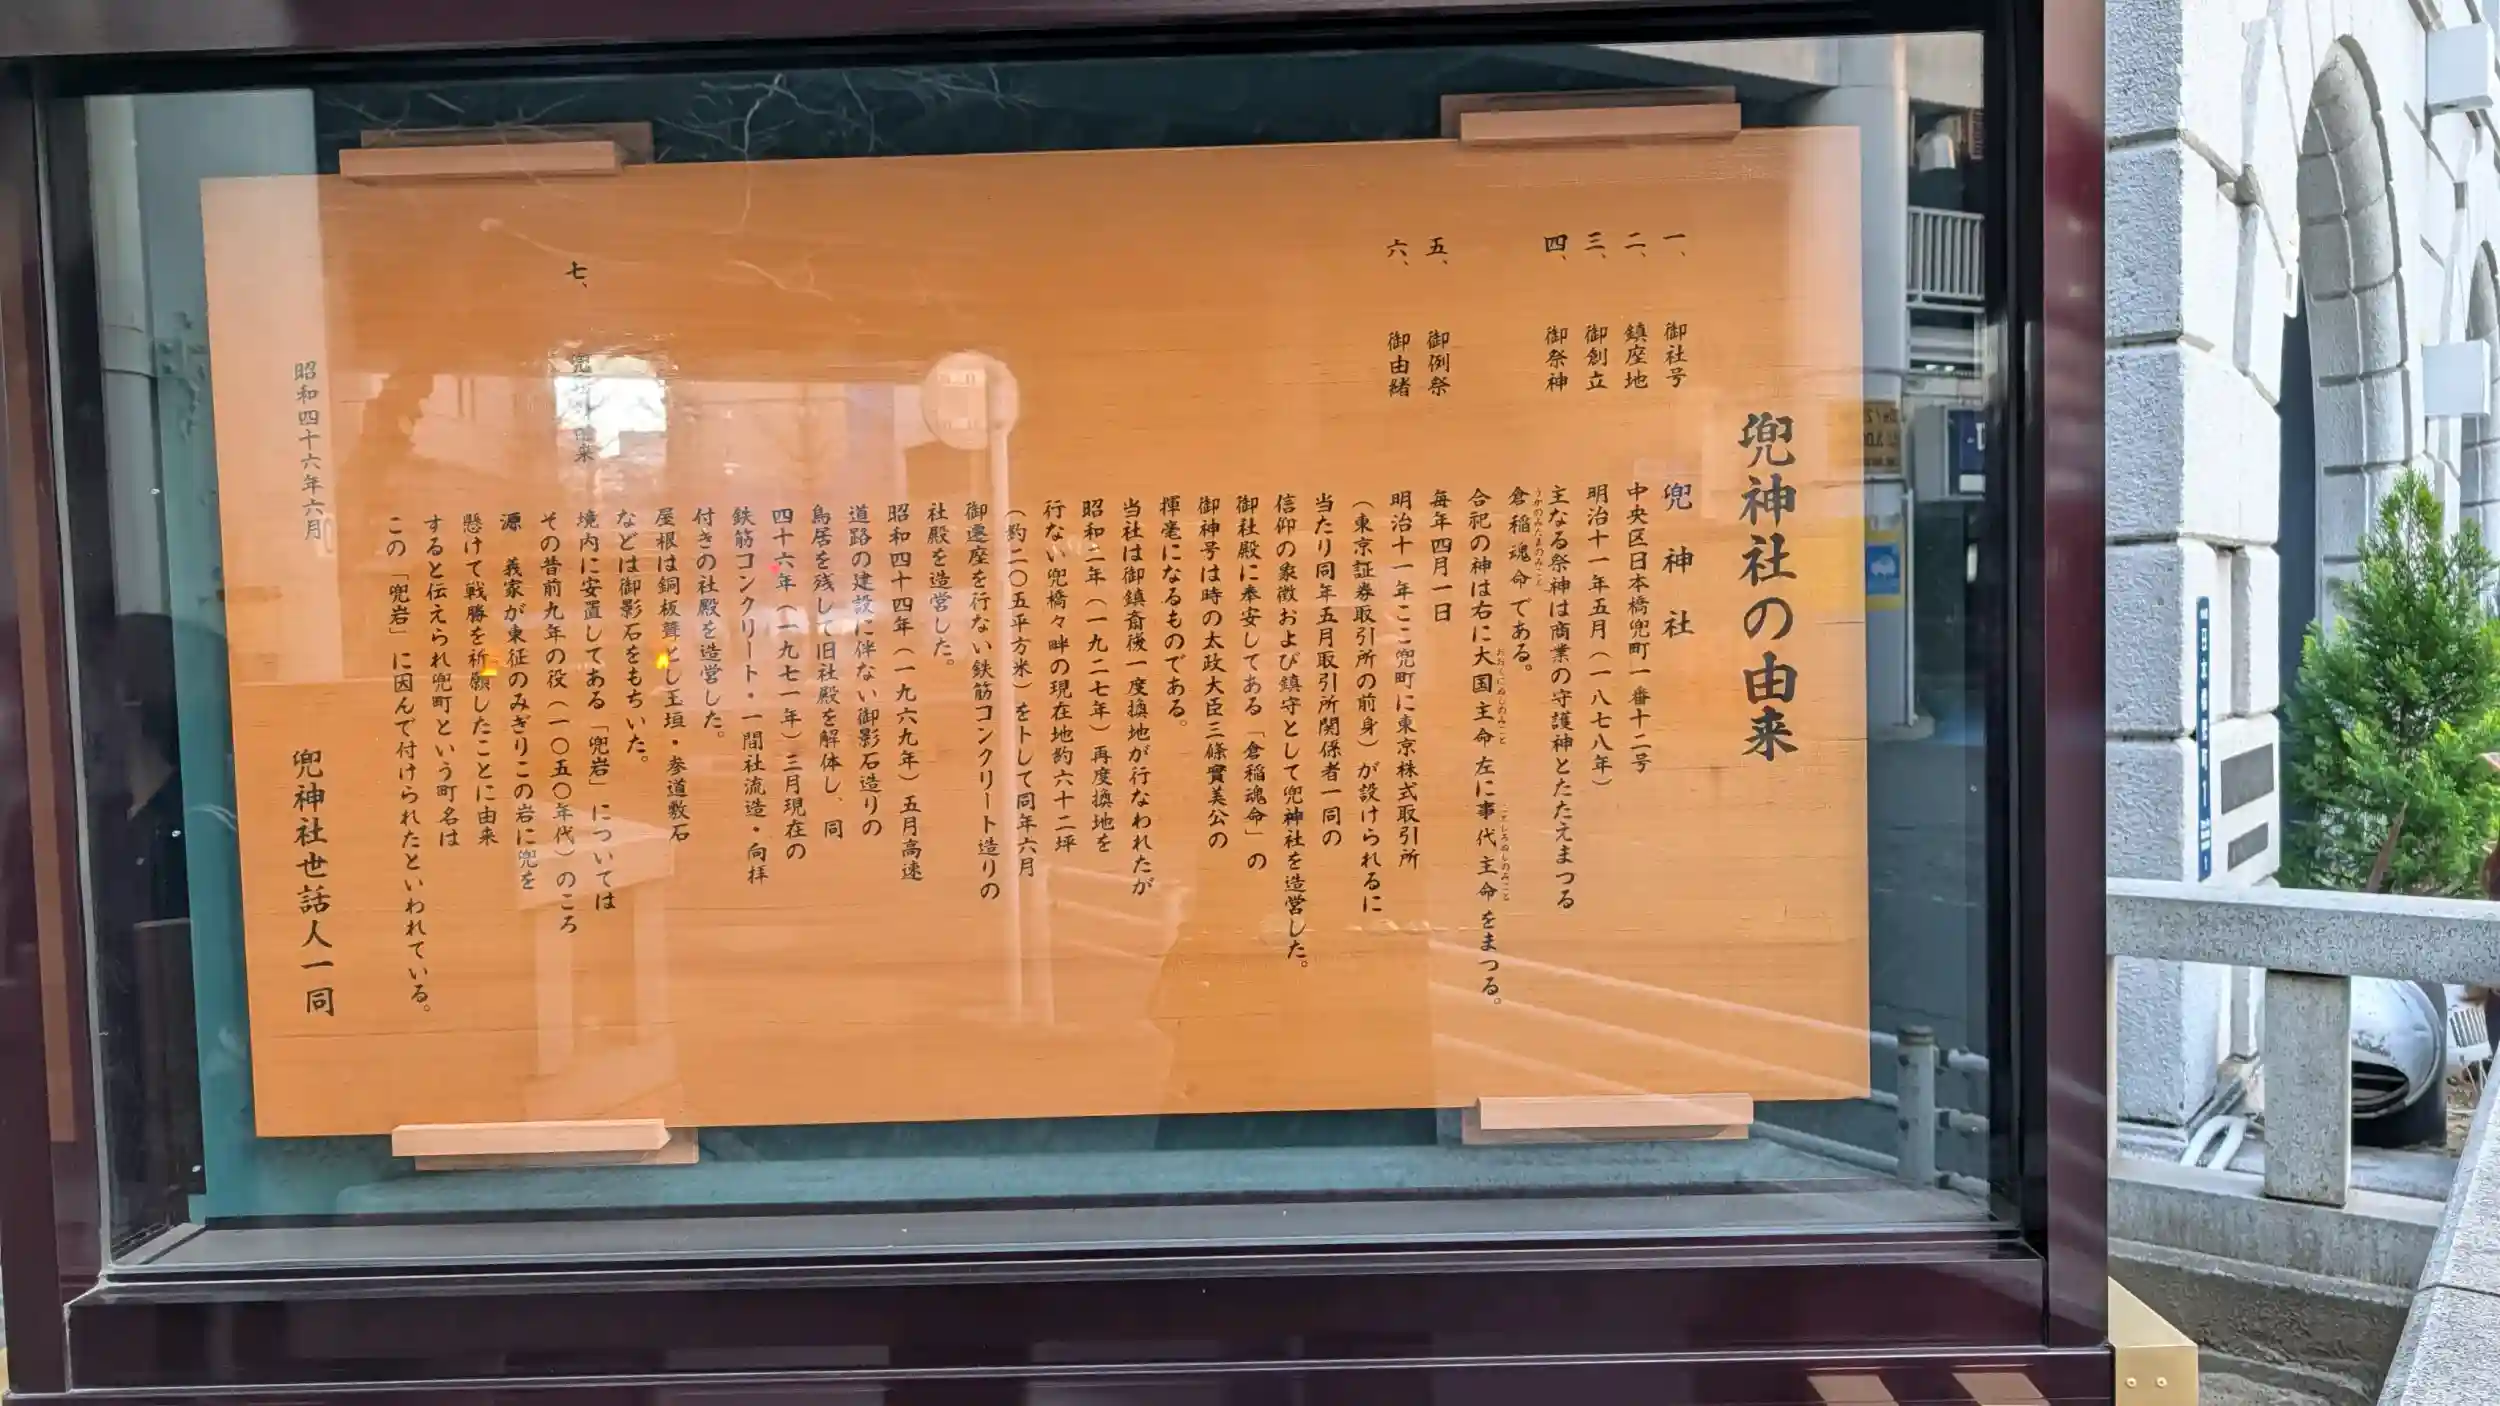 兜神社の由来
一、 御社号 兜神社
二、 鎮座地 中央区日本橋兜町一番十二号
三、 御創立 明治十一年五月(一八七八年)
四、 御祭神 主なる祭神は商業の守護神とたたえまつる
倉稲魂命である。
うかのみたまのみこと
合祀の神は右に大国主命 左に事代主命をまつる。
おおくにぬしのみこと ことしろぬしのみこと
五、 御例祭 毎年四月一日
六、 御由緒 明治十一年ここ兜町に東京株式取引所
(東京証券取引所の前身)が設けられるに
当たり同年五月取引所関係者一同の
信仰の象徴および鎮守として兜神社を造営した。
御社殿に奉安してある「倉稲魂命」の
御神号は時の太政大臣三條實美公の
揮毫になるものである。
当社は御鎮斎後一度換地が行なわれたが
昭和二年(一九二七年)再度換地を
行ない兜橋々畔の現在地約六十二坪
(約二〇五平方米)を卜して同年六月
御遷座を行ない鉄筋コンクリート造りの
社殿を造営した。
昭和四十四年(一九六九年)五月高速
道路の建設に伴ない御影石造りの
鳥居を残して旧社殿を解体し、同
四十六年(一九七一年)三月現在の
鉄筋コンクリート・一間社流造・向拝
付きの社殿を造営した。
屋根は銅板葺とし玉垣・参道敷石
などは御影石をもちいた。
七、 兜 由来 境内に安置してある「兜岩」については
その昔前九年の役(一〇五〇年代)のころ
源 義家が東征のみぎりこの岩に兜を
懸けて戦勝を祈願したことに由来
すると伝えられ兜町という町名は
この「兜岩」に因んで付けられたといわれている。
昭和四十六年六月
兜神社世話人一同
日本橋兜町1